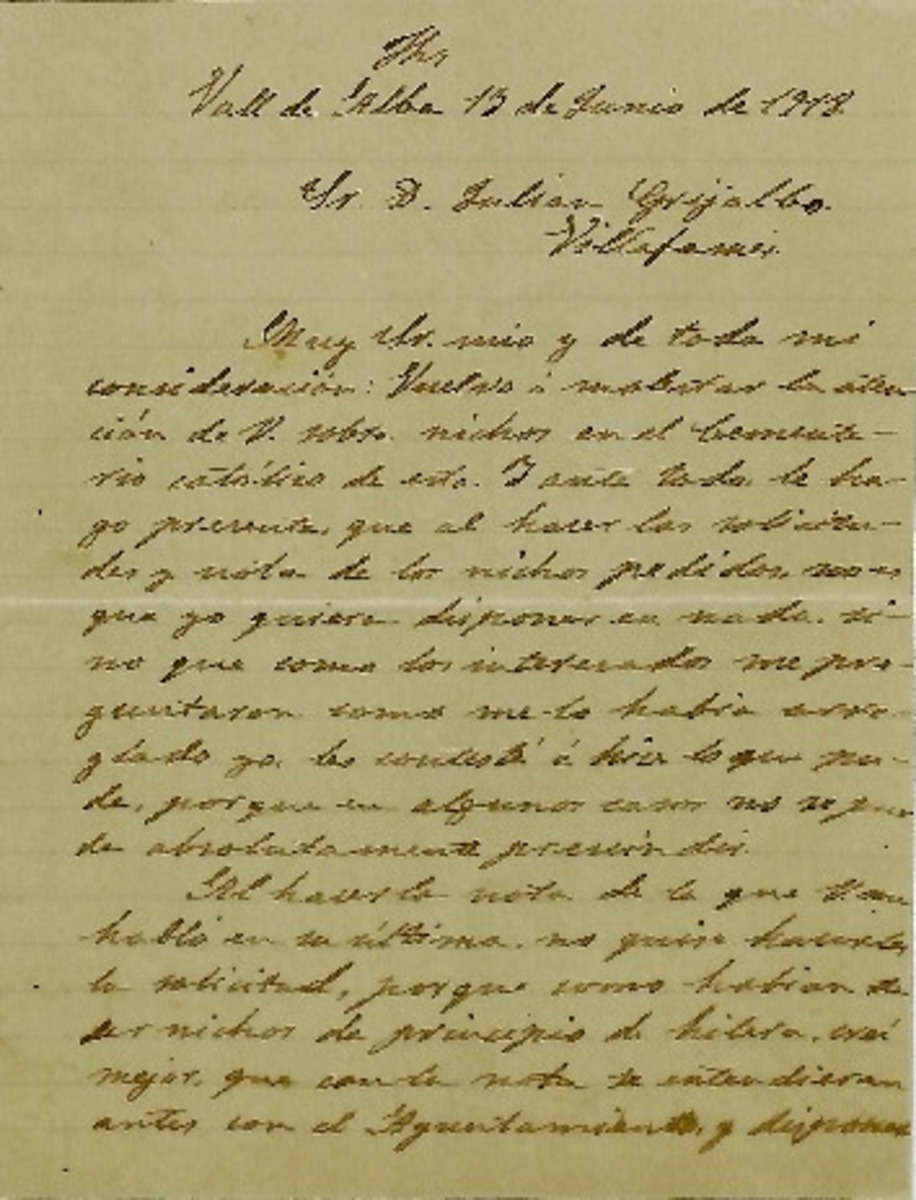 Jhs
Vall de Alba 13 de Junio de 1918
Sr. D. Julian Grijalbo.
Villafamés.
Muy Sr. mio y de toda mi
consideración: Vuelvo á molestar la aten
ción de V. sobre nichos en el Cemente-
rio católico de esta. Y ante todo le ha-
go presente, que al hacer las solicitu-
des y nota de los nichos pedidos, no es
que yo quiera disponer en nada, si-
no que como los interesados me pre-
guntaron como me lo habia arre-
glado yo, les contesté é hice lo que pu-
de, porque en algunos casos no se pue
de absolutamente prescindir.
Al hacer la nota de la que V. me
habló en su última, no quise hacerles
la solicitud, porque como habian de
ser nichos de principio de hilera, creí
mejor, que con la nota se entendieran
antes con el Ayuntamiento, y disponer